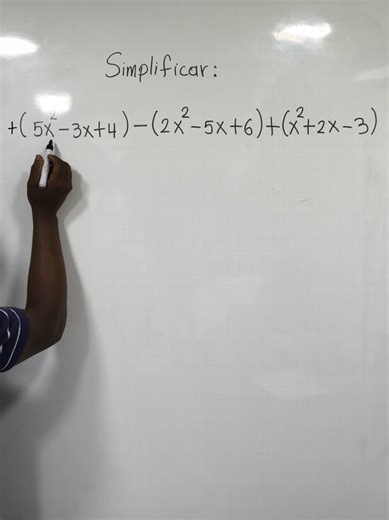 Simplificar:
+(5x²-3x+4)-(2x²-5x+6)+(x²+2x-3)